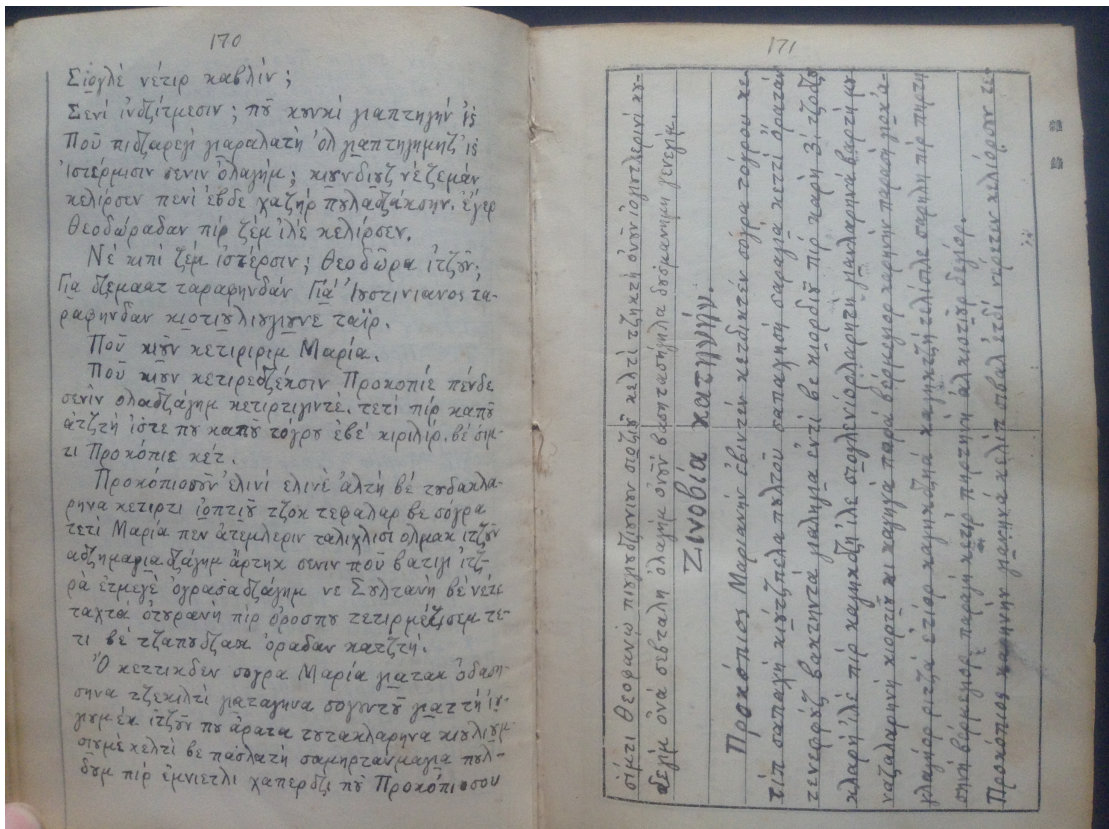 170
Σἰογλὲ νέτιρ καβλίν;
Σενὶ ἰνδζίτμεσιν; πῦ κυνκὶ γιαπτηγήν ἰς
Ποῦ πιδζαρεγὶ γιαραλατὴ ὀλ γιαπτηγημηζ ἰς
ἰστέρμισιν σενιν ὀλαγήμ; κιουνδιοῦζ νὲ ζεμὰν
κελίρσιν πενὶ ἐβδε χαζὴρ πυλατζάκσην. ἐγερ
Θεοδώραδαν πὶρ ζὲμ ἰλὲ κελίρσεν.
Νὲ κιπὶ ζὲμ ἰστέρσιν; Θεοδῶρα ἰτζοῦν;
Γιὰ δζεμαατ ταραφηνδάν Γιὰ Ἰουστινιανος τα-
ραφηνδαν κιοτιουλιουγιουνὲ ταΐρ.
Ποῦ κιοῦν κετιριριμ Μαρία.
Ποῦ κιοῦν κετιρεδζέκσιν Προκοπίε πένδε
σενὶν ολαδζάγημ κετιρτιγιντὲ. τετὶ πὶρ καπῦ
ἀτζτὴ ἰστε πυ καπῦ τόγρυ ἐβὲ κιριλίρ. βὲ σιμ-
τι Προκόπιε κέτ.
Προκόπιοσοῦν ἐλινὶ ελινὲ ἀλτὴ βὲ τυδακλα-
ρηνα κετιρτι ἰοπτιοῦ τζοκ τεφαλαρ βε σόγρα
τετὶ Μαρία πεν ἀτεμλεριν ταλιχλισὶ ολμακ ἰτζοῦν
ἄρτηκ σενιν ποῦ βατιγὶ ἰτζ-
ρὰ ἐτμεγὲ ὀγρασαδζάγημ νε Συλτανὴ βὲ νέτε
ταχτὰ ὀτυρανὴ πὶρ ὀροσπυ τετιρμέζσεμ τε-
τι βὲ τζαπυδζακ ὀραδαν κατζτή.
Ὀ κεττικδεν σογρα Μαρία γιατακ ὀδαση-
σηνα τζεκιλτὶ γιαταγηνα σογυντῦ γιαττὴ ἰγ-
γιυμὲκ ἰτζοῦν πυ ἄρατα τυτακλαρηνα κιουλιουμ
σιυμὲ κελτὶ βε πασλατὴ σαμηρτανμαγια πυλ-
δυμ πὶρ ἐμνιετλι χαπερδζι πῦ Προκόπιοσου
171
σίμτι Θεοφανίῳ πιουγιουδζιουνιουν σιοζιοῦ κελτὶ τζηκτὴ ὀνοῦν ἰογιυτλερινὶ κυ-
δεγὶμ ὀνὰ σεβταλὴ ὀλαγὴμ ὀνοῦν βασητασήιλα δυσμανημη γενεγίμ.
Ζινοβία κατηνήν.
Προκόπιος Μαριανην ἐβιντὲν κετδικτέν σόγρα τόγρου κε-
τὶπ σαπαχὴ κιουτζιπελα πυλτοῦ σαπαχησὴ σαραγια κεττὶ ὄρατὰν
τενεφφοῦζ βακτηντὰ γιαληγια ἐντὶ βε κιορδιοῦ πὶρ καρὴ 3: τζοδζ
κλαρὴ ἰλὲ πὶρ καγηκδζὴ ἰλὲ σιογλενιορλαρητὴ γιακλαρηνὰ βαρτὴ μυ
ναζαλαρηνὴ κιορτιοῦ κι καγηγὰ παρὰ βέρμεγιορ καρηνην παρασὴ γιοκὰ-
γλαγιορ ριτζὰ ἐτίορ καγηκδζηὰ καγηκτζὴ τελίσιλε σαρηλη πὶρ πηρτη
σηνὴ βέρμεγιορ παραμ κετὶρ πηρτηνὴ ἀλκιοτιοῦρ δεγίορ.
Προκόπιος καρηνὴν γιανηνὰ κελὶπ σβαλ ἐτδὶ νέρετεν κελίορσυν τε-